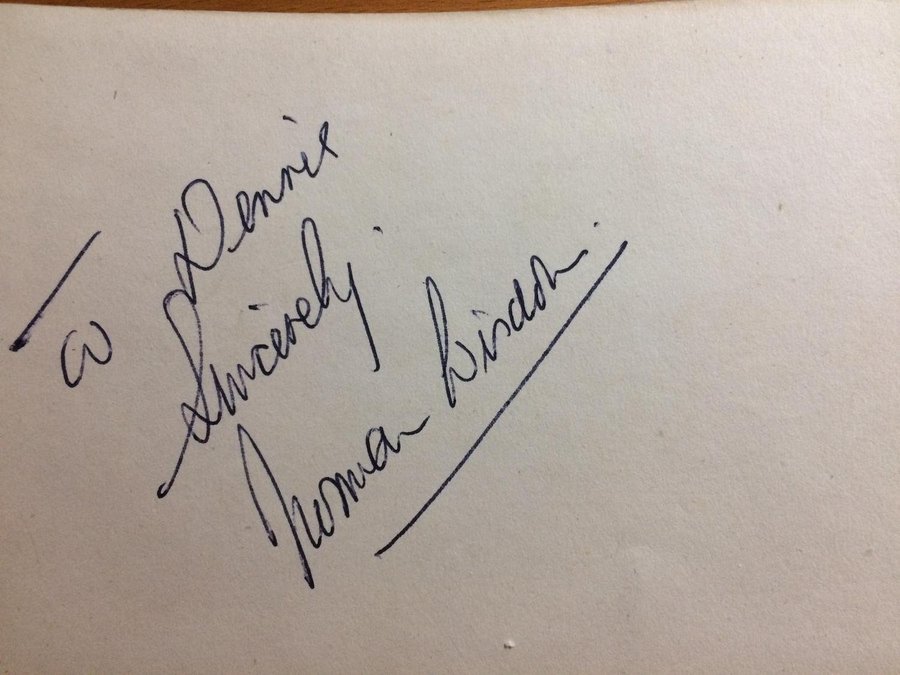 To Dennis
Sincerely
Norman Wisdom.